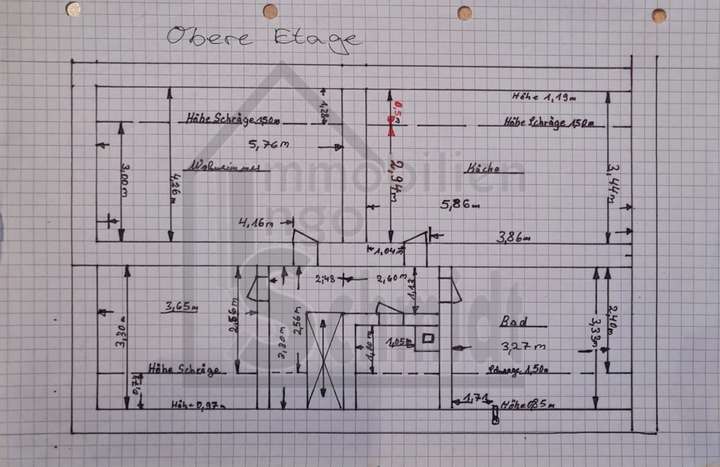 Obere Etage
Höhe 1,19m
1,28
0,5
Höhe Schräge 1,50m
Höhe Schräge 1,50m
5,76m
3,00m
4,26m
Wohnzimmer
2,94m
Küche
3,44m
5,86m
4,16m
3,86m
1,04m
2,48
2,60m
3,65m
2,56m
2,56m
3,30m
Bad
3,27m
2,40m
3,33m
1,05m
Höhe Schräge
Schräge 1,50m
1,71
Höhe 0,97m
Höhe 0,85m
Immobilien
Ingo
Schmidt